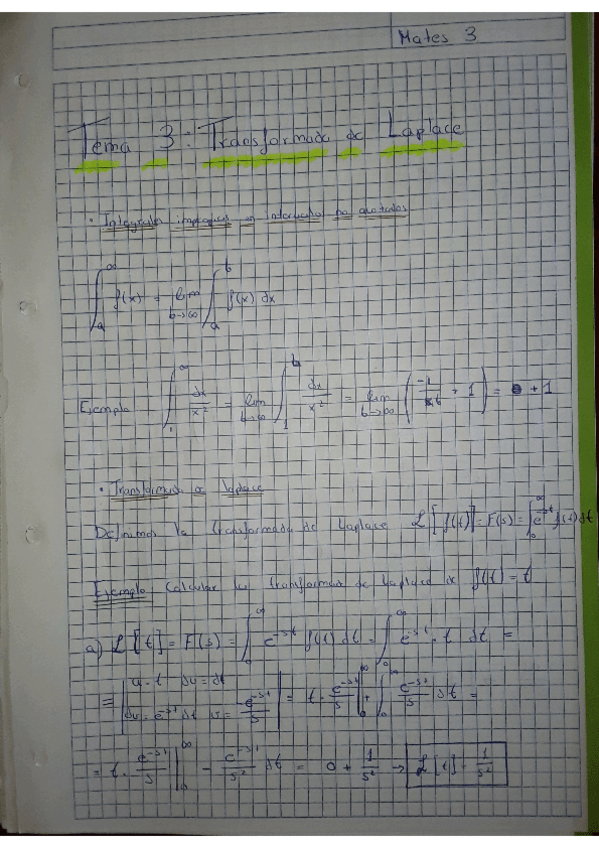 Mates 3
Tema 3: Transformada de Laplace
• Integrales impropias en intervalos no acotados
∫_a^∞ f(x) = lim_{b→∞} ∫_a^b f(x) dx
Ejemplo ∫_1^∞ dx/x² = lim_{b→∞} ∫_1^b dx/x² = lim_{b→∞} (-1/b + 1) = 0 + 1
• Transformada de Laplace
Definimos la transformada de Laplace L[f(t)] = F(s) = ∫_0^∞ e^{-st} f(t) dt
Ejemplo Calcular la transformada de Laplace de f(t) = t
a) L[t] = F(s) = ∫_0^∞ e^{-st} f(t) dt = ∫_0^∞ e^{-st} · t dt =
= | u = t du = dt dv = e^{-st} dt v = -e^{-st}/s | = t · e^{-st}/s |_0^∞ + ∫_0^∞ e^{-st}/s dt =
= t · e^{-st}/s |_0^∞ - e^{-st}/s² dt = 0 + 1/s² → L[t] = 1/s²